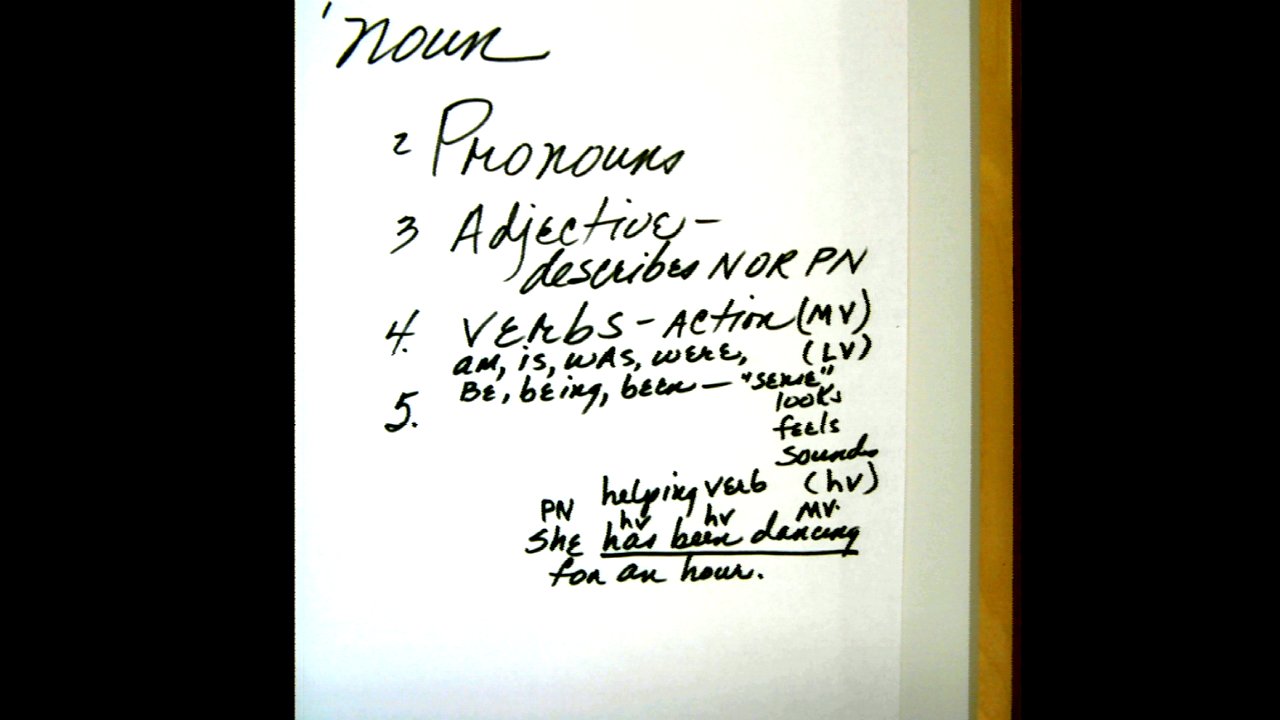 1 noun
2 Pronouns
3 Adjective -
describes N OR PN
4. VERbS - ACtion (MV)
am, is, wAs, wERE, (LV)
5. BE, being, been - "sense"
looks
feels
sounds
helping vERb (hv)
PN hv hv MV.
She has been dancing
for an hour.